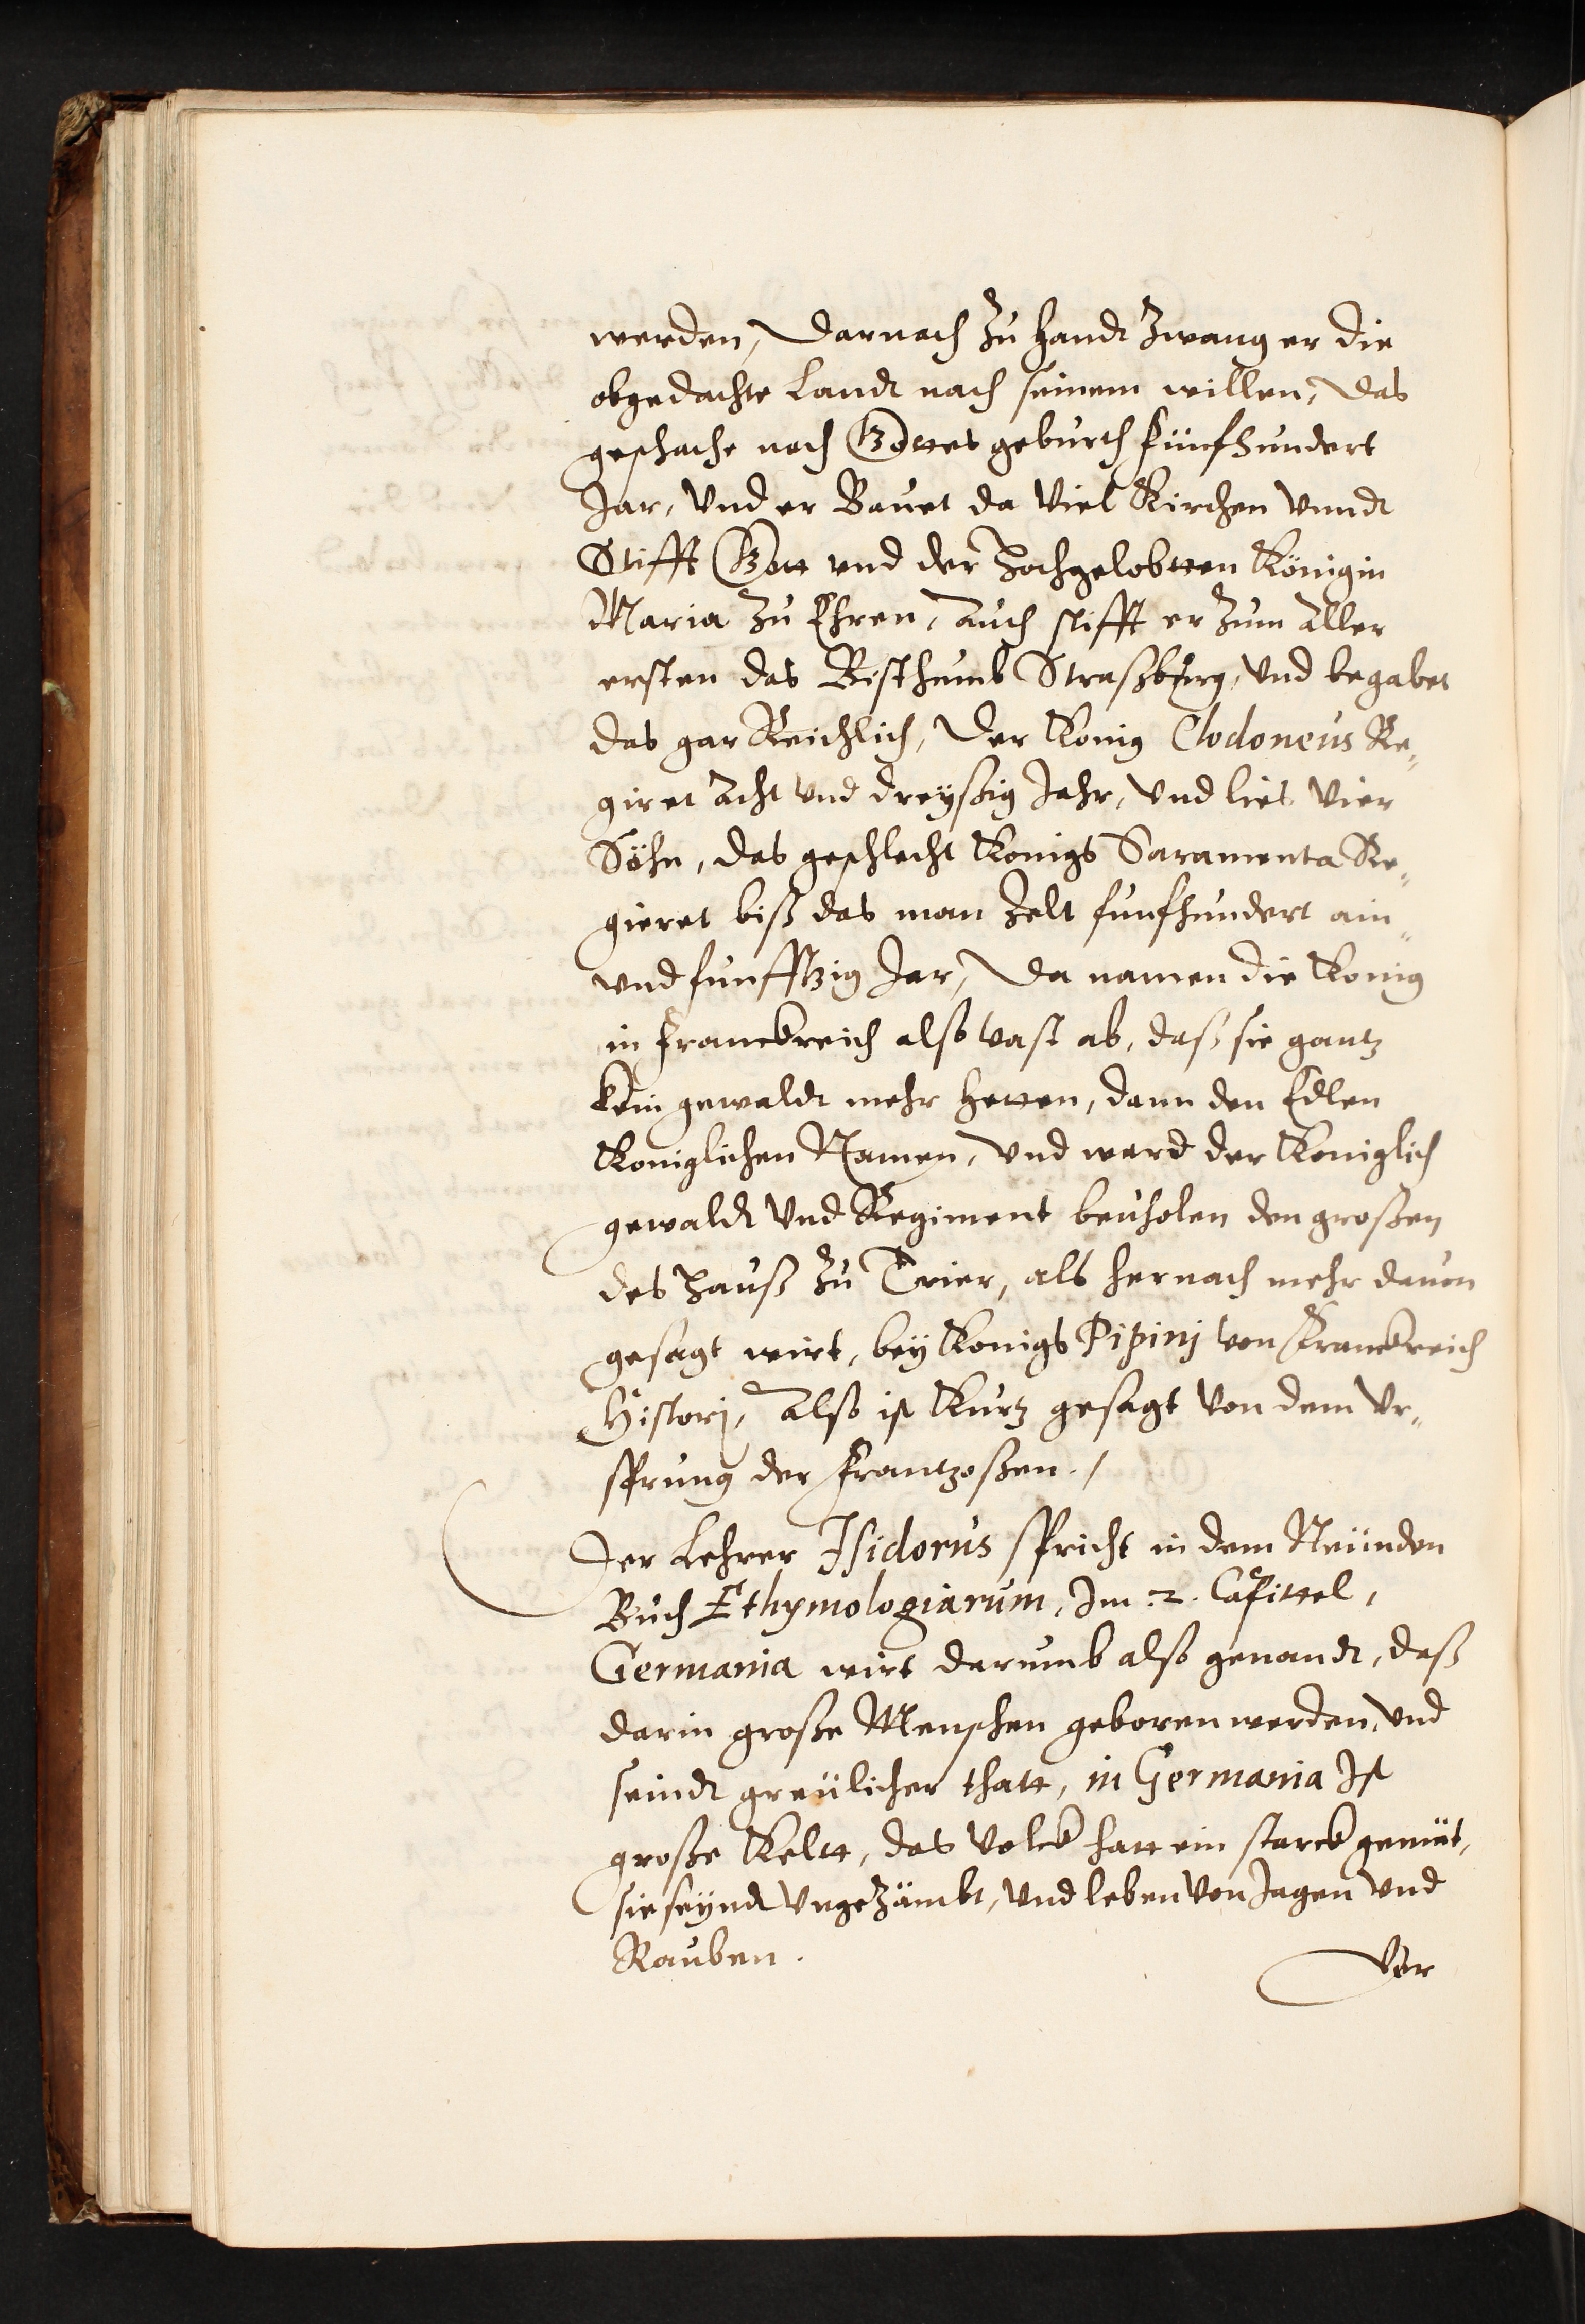 werden, Darnach zu handt zwang er die
obgedachte Landt nach seinem willen, Das
geschache nach Gottes geburth fünfhundert
Jar, Vnd er Bauet da Viel Kirchen Vnndt
Stifft Gott vnd der Hochgelobtten Königin
Maria zu Ehren, Auch stifft er zum Aller
ersten das Bisthumb Straßburg, Vnd begabet
das gar Reichlich, Der König Clodoneus Re„
giret Acht Vnd dreyßig Jahr, Vnd lies Vier
Söhn, das geschlecht Konigs Saramenta Re„
gieret biß das man Zelt funfhundert ain„
vnd funfftzig Jar, Da namen die Konig
in Franckreich also vast ab, daß sie gantz
kein gewaldt mehr hetten, dann den Edlen
Koniglichen Namen, Vnd ward der Koniglich
gewaldt Vnd Regiment beuholen den großen
des Hauß zu Trier, als hernach mehr dauon
gesagt wirt, bey Konigs Pipinj von Franckreich
Historj, Also ist Kurtz gesagt Von dem Vr„
sprung der Frantzoßen./
Der Lehrer Isidorus spricht in dem Neünden
Buch Ethymologiarum, Im .2. Capittel,
Germania wirt darumb also genandt, daß
darin große Menschen geboren werden, Vnd
seindt greülicher thatt, in Germania Ist
große Keltt, das Volck hatt ein starck gemüt,
sie seynd Vngezämbt, Vnd leben Von Jagen Vnd
Rauben.
Vor